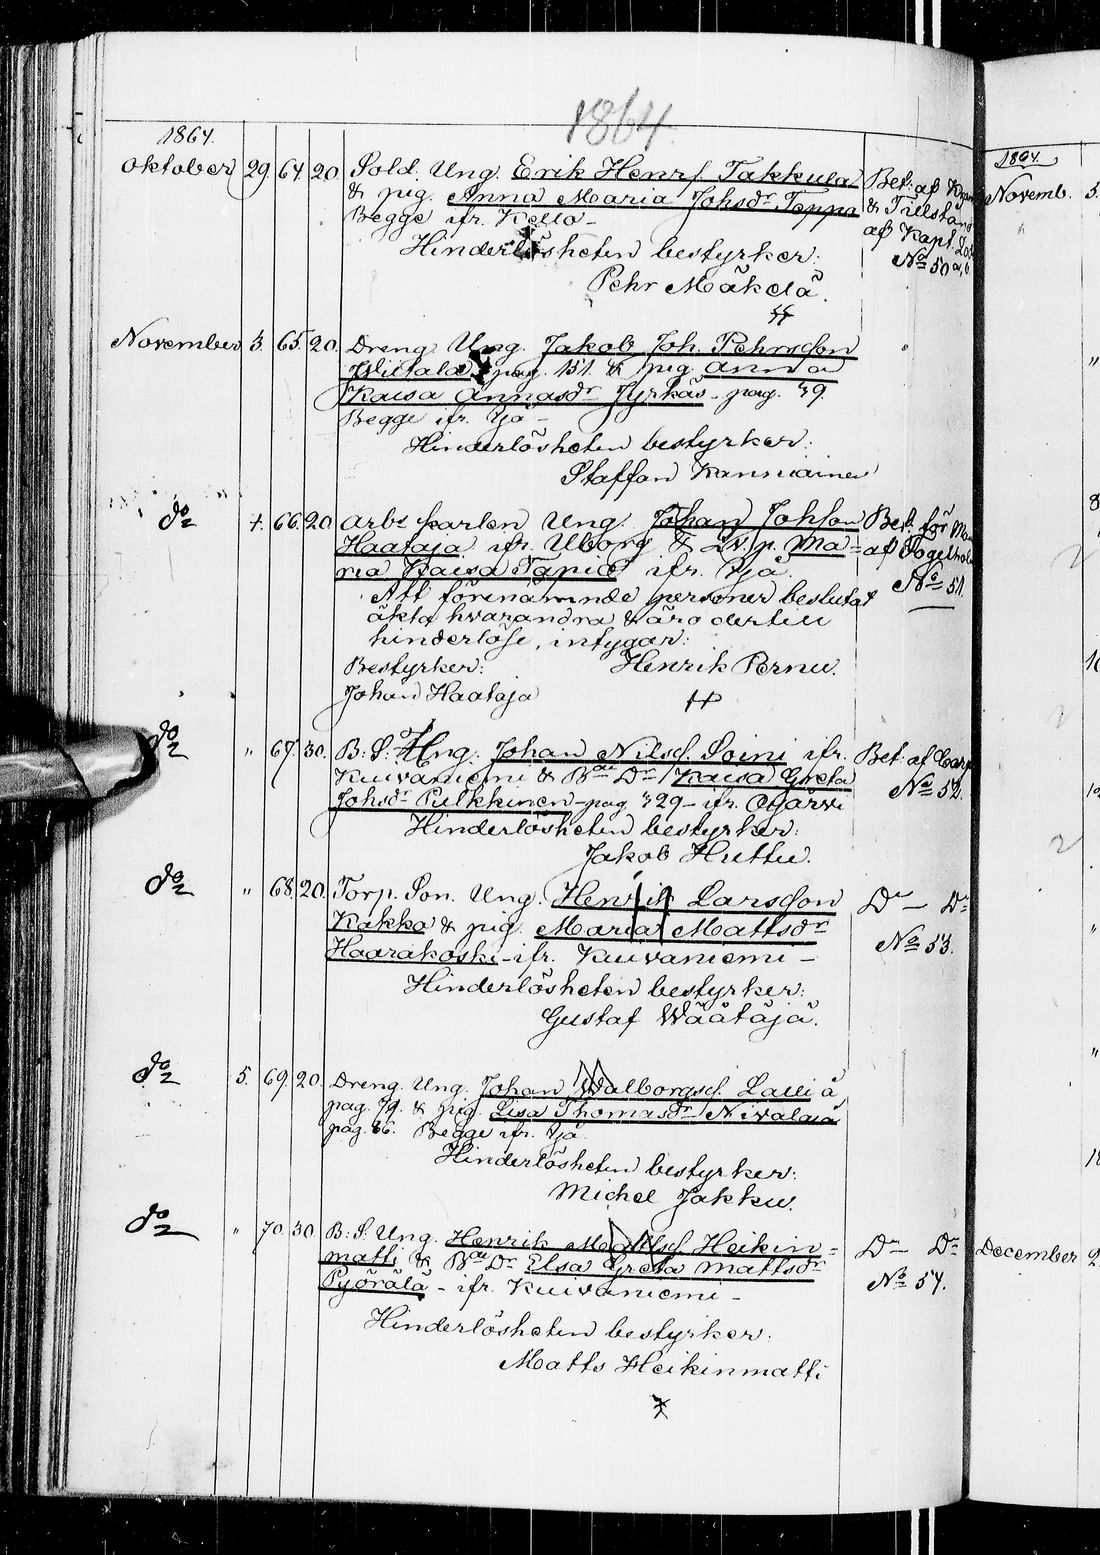 1864
1864.
Oktober 29. 64. 20. Sold. Ung. Erik Henrs. Takkula
& pig. Anna Maria Johsdr Teppa
Begge ifr. Kello –
Hinderlösheten bestyrker:
Pehr Mäkelä.
Bet: af
& Tillstånd
af Kapt.
No 50 a, b.
November 3. 65. 20. Dreng Ung. Jakob Joh. Pehrsson
pag. 151. & pig Anna
Kaisa Annasdr Jyrkäs – pag. 39.
Begge ifr. Ijå –
Hinderlösheten bestyrker:
Staffan Kanniainen
do 4. 66. 20. Arbs karlen Ung. Johan Johsson
Haataja ifr. Uborg & Ln. p. Ma=
ria Kaisa Tapio ifr. Ijå.
Att förenämnde personer beslutat
äkta hvarandra & äro dertill
hinderlöse, intygar:
Bestyrker: Henrik Pernu.
Johan Haataja
Bet. för
af
No 51.
do " 67. 30. B: S: Ung. Johan Nilss. Soini ifr.
Kuivaniemi & Bde Dr Kaisa Greta
Johsdr Pulkkinen – pag. 329 – ifr. Ojärvi
Hinderlösheten bestyrker:
Jakob Huttu.
Bet: af
No 52.
do " 68. 20. Torp. Son. Ung. Henrik Larsson
Kakko & pig. Maria Mattsdr
Haarakoski – ifr. Kuivaniemi –
Hinderlösheten bestyrker:
Gustaf Wäätäjä.
Do – Do
No 53.
do 5. 69. 20. Dreng. Ung. Johan Walborgss. Lalli å
pag. 79. & pig. Lisa Thomasdr Niwala å
pag. 36. Begge ifr. Ijå
Hinderlösheten bestyrker:
Michel Jakku.
do " 70. 30. B: S: Ung. Henrik Mattss. Heikin=
matti & Bde Dr Elsa Greta Mattsdr
Pyörälä – ifr. Kuivaniemi –
Hinderlösheten bestyrker:
Matts Heikinmatti
Do – Do
No 54.
1864.
Novemb. 5.
December